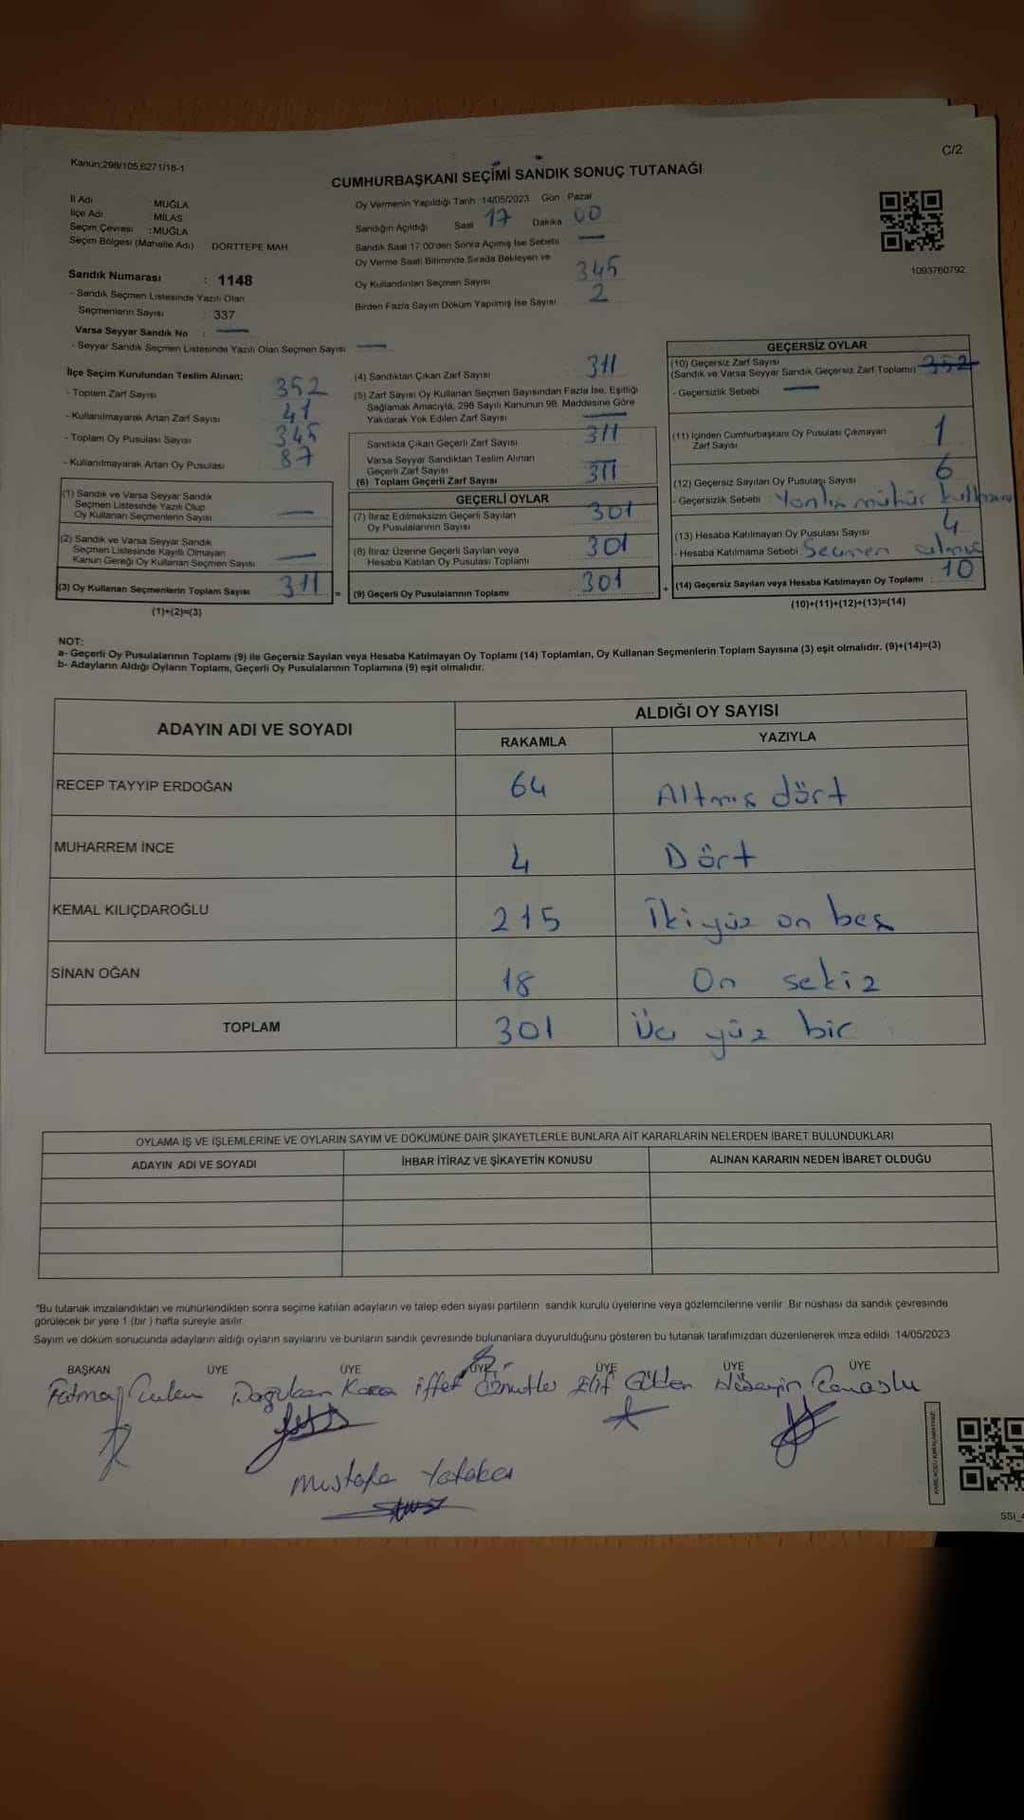 Kanun:298/105,6271/18-1
C/2
CUMHURBAŞKANI SEÇİMİ SANDIK SONUÇ TUTANAĞI
İl Adı MUĞLA
İlçe Adı MİLAS
Seçim Çevresi :MUĞLA
Seçim Bölgesi (Mahalle Adı) DÖRTTEPE MAH
Sandık Numarası : 1148
- Sandık Seçmen Listesinde Yazılı Olan
Seçmenlerin Sayısı 337
Varsa Seyyar Sandık No : —
- Seyyar Sandık Seçmen Listesinde Yazılı Olan Seçmen Sayısı —
Oy Vermenin Yapıldığı Tarih 14/05/2023 Gün Pazar
Sandığın Açıldığı Saat 17 Dakika 00
Sandık Saat 17:00'den Sonra Açılmış İse Sebebi —
Oy Verme Saati Bitiminde Sırada Bekleyen ve
Oy Kullandırılan Seçmen Sayısı 345
Birden Fazla Sayım Döküm Yapılmış İse Sayısı 2
1093760792
İlçe Seçim Kurulundan Teslim Alınan;
- Toplam Zarf Sayısı 352
- Kullanılmayarak Artan Zarf Sayısı 41
- Toplam Oy Pusulası Sayısı 345
- Kullanılmayarak Artan Oy Pusulası 87
(1) Sandık ve Varsa Seyyar Sandık
Seçmen Listesinde Yazılı Olup
Oy Kullanan Seçmenlerin Sayısı —
(2) Sandık ve Varsa Seyyar Sandık
Seçmen Listesinde Kayıtlı Olmayan
Kanun Gereği Oy Kullanan Seçmen Sayısı —
(3) Oy Kullanan Seçmenlerin Toplam Sayısı 311
(1)+(2)=(3)
(4) Sandıktan Çıkan Zarf Sayısı 311
(5) Zarf Sayısı Oy Kullanan Seçmen Sayısından Fazla İse, Eşitliği
Sağlamak Amacıyla, 298 Sayılı Kanunun 98. Maddesine Göre
Yakılarak Yok Edilen Zarf Sayısı —
Sandıkta Çıkan Geçerli Zarf Sayısı 311
Varsa Seyyar Sandıktan Teslim Alınan
Geçerli Zarf Sayısı
(6) Toplam Geçerli Zarf Sayısı 311
GEÇERLİ OYLAR
(7) İtiraz Edilmeksizin Geçerli Sayılan
Oy Pusulalarının Sayısı 301
(8) İtiraz Üzerine Geçerli Sayılan veya
Hesaba Katılan Oy Pusulası Toplamı 301
= (9) Geçerli Oy Pusulalarının Toplamı 301
GEÇERSİZ OYLAR
(10) Geçersiz Zarf Sayısı
(Sandık ve Varsa Seyyar Sandık Geçersiz Zarf Toplamı) 352
- Geçersizlik Sebebi —
(11) İçinden Cumhurbaşkanı Oy Pusulası Çıkmayan
Zarf Sayısı 1
(12) Geçersiz Sayılan Oy Pusulası Sayısı 6
- Geçersizlik Sebebi Yanlış mühür
(13) Hesaba Katılmayan Oy Pusulası Sayısı 4
- Hesaba Katılmama Sebebi Seçmen
+ (14) Geçersiz Sayılan veya Hesaba Katılmayan Oy Toplamı : 10
(10)+(11)+(12)+(13)=(14)
NOT:
a- Geçerli Oy Pusulalarının Toplamı (9) ile Geçersiz Sayılan veya Hesaba Katılmayan Oy Toplamı (14) Toplamları, Oy Kullanan Seçmenlerin Toplam Sayısına (3) eşit olmalıdır. (9)+(14)=(3)
b- Adayların Aldığı Oyların Toplamı, Geçerli Oy Pusulalarının Toplamına (9) eşit olmalıdır.
ADAYIN ADI VE SOYADI ALDIĞI OY SAYISI
RAKAMLA YAZIYLA
RECEP TAYYİP ERDOĞAN 64 Altmış dört
MUHARREM İNCE 4 Dört
KEMAL KILIÇDAROĞLU 215 İkiyüz on beş
SİNAN OĞAN 18 On sekiz
TOPLAM 301 Üç yüz bir
OYLAMA İŞ VE İŞLEMLERİNE VE OYLARIN SAYIM VE DÖKÜMÜNE DAİR ŞİKAYETLERLE BUNLARA AİT KARARLARIN NELERDEN İBARET BULUNDUKLARI
ADAYIN ADI VE SOYADI İHBAR İTİRAZ VE ŞİKAYETİN KONUSU ALINAN KARARIN NEDEN İBARET OLDUĞU
*Bu tutanak imzalandıktan ve mühürlendikten sonra seçime katılan adayların ve talep eden siyasi partilerin sandık kurulu üyelerine veya gözlemcilerine verilir. Bir nüshası da sandık çevresinde
görülecek bir yere 1 (bir) hafta süreyle asılır.
Sayım ve döküm sonucunda adayların aldığı oyların sayılarını ve bunların sandık çevresinde bulunanlara duyurulduğunu gösteren bu tutanak tarafımızdan düzenlenerek imza edildi. 14/05/2023
BAŞKAN ÜYE ÜYE ÜYE ÜYE ÜYE ÜYE
Fatma Doğukan Kara iffet Elif Hüseyin
Mustafa